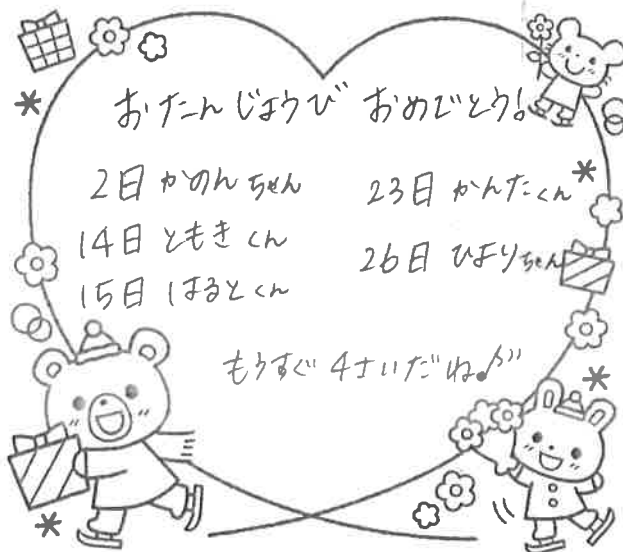 おたんじょうび おめでとう!
2日 かのんちゃん
14日 ともきくん
15日 はるとくん
23日 かんたくん
26日 ひよりちゃん
もうすぐ4さいだね♪